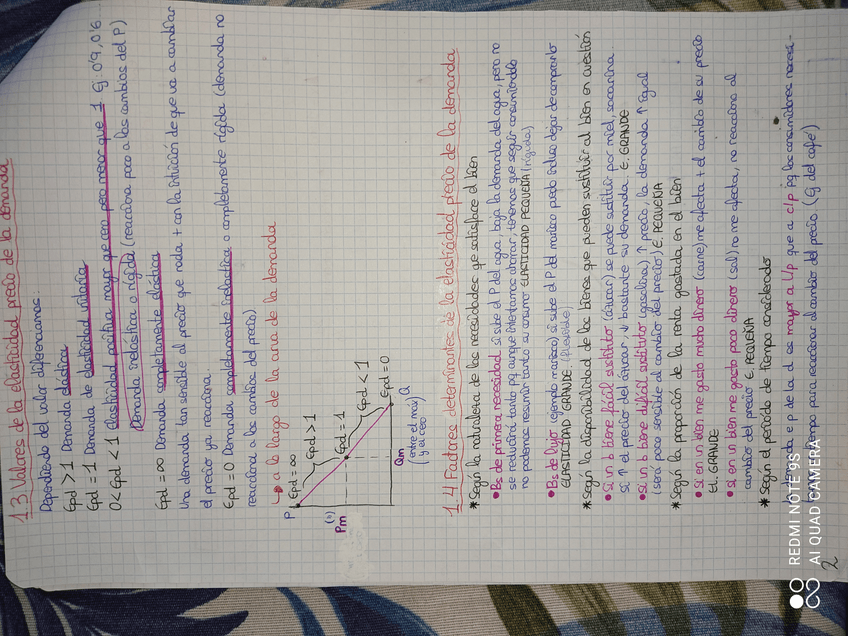 1.3 Valores de la elasticidad precio de la demanda
Dependiendo del valor diferenciamos:
Epd > 1 Demanda elástica
Epd = 1 Demanda de elasticidad unitaria
0 < Epd < 1 Elasticidad positiva mayor que cero pero menor que 1. Ej: 0'9, 0'6...
Demanda inelástica o rígida (reacciona poco a los cambios del P)
Epd = ∞ Demanda completamente elástica
Una demanda tan sensible al precio que nada + con la intuición de que va a cambiar
el precio ya reacciona.
Epd = 0 Demanda completamente inelástica o completamente rígida (demanda no
reacciona a los cambios del precio)
a lo largo de la curva de la demanda
P
Epd = ∞
Epd > 1
Pm
Epd = 1
Epd < 1
Epd = 0
Qm
Q
(entre el máx
y el cero)
1.4 Factores determinantes de la elasticidad precio de la demanda
* Según la naturaleza de las necesidades que satisface el bien
• Bs de primera necesidad: si sube el P del agua, baja la demanda del agua, pero no
se reducirá tanto pq aunque intentamos ahorrar, tenemos que seguir consumiendo
no podemos resumir tanto su consumo ELASTICIDAD PEQUEÑA (rígida)
• Bs de lujo (ejemplo marisco) si sube el P del marisco puedo incluso dejar de comprarlo
ELASTICIDAD GRANDE. (flexible)
* Según la disponibilidad de los bienes que pueden sustituir al bien en cuestión
• Si un b tiene fácil sustituto (azúcar) se puede sustituir por miel, sacarina.
si ↑ el precio del azúcar, ↓ bastante su demanda. E. GRANDE
• Si un b tiene difícil sustituto (gasolina) ↑ precio, la demanda ↑ igual
(será poco sensible al cambio del precio) E. PEQUEÑA
* Según la proporción de la renta gastada en el bien
• Si en un bien me gasto mucho dinero (carne) me afecta + el cambio de su precio
EL. GRANDE
• si en un bien me gasto poco dinero (sal) no me afecta, no reacciono al
cambio del precio E. PEQUEÑA
* Según el periodo de tiempo considerado
e p de la d es mayor a l/p que a c/p pq los consumidores necesi-
tiempo para reaccionar al cambio del precio (Ej del café)
2
REDMI NOTE 9S
AI QUAD CAMERA